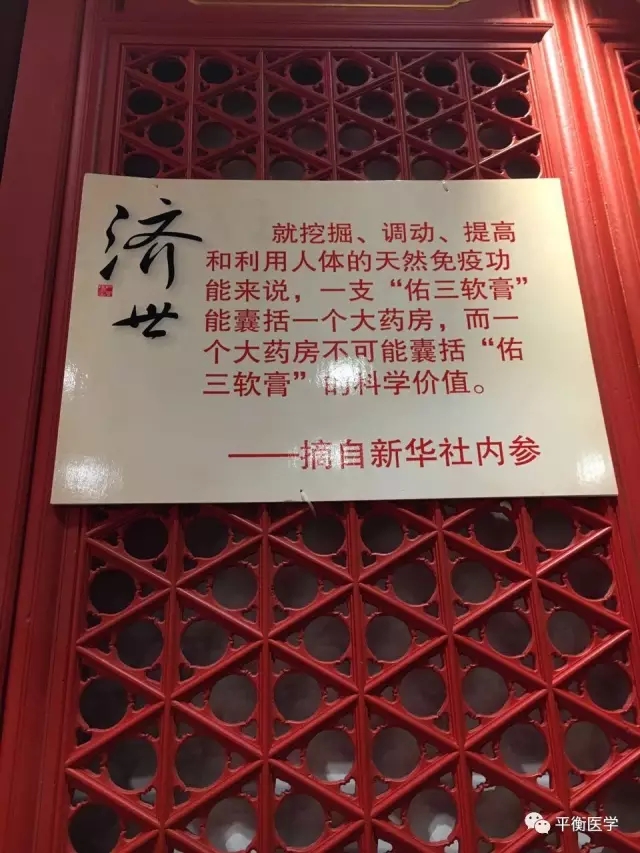 济世
就挖掘、调动、提高
和利用人体的天然免疫功
能来说，一支“佑三软膏”
能囊括一个大药房，而一
个大药房不可能囊括“佑
三软膏”的科学价值。
——摘自新华社内参
平衡医学